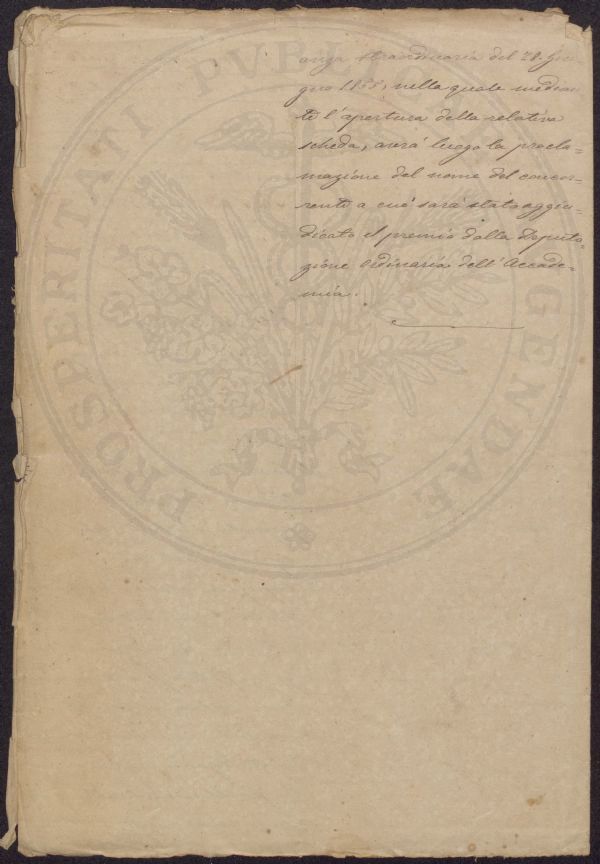 anza straordinaria del 28. Giu-
gno 1855, nella quale median
te l'apertura della relativa
scheda, avrà luogo la procla=
mazione del nome del concor=
rente a cui sarà stato aggiu=
dicato il premio dalla Deputa=
zione Ordinaria dell' Accade=
mia.
PROSPERITATI PVBLICAE AVGENDAE